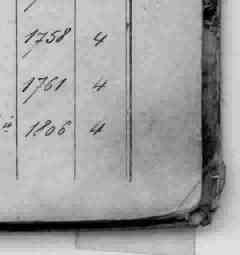 1758 4
1761 4
1806 4